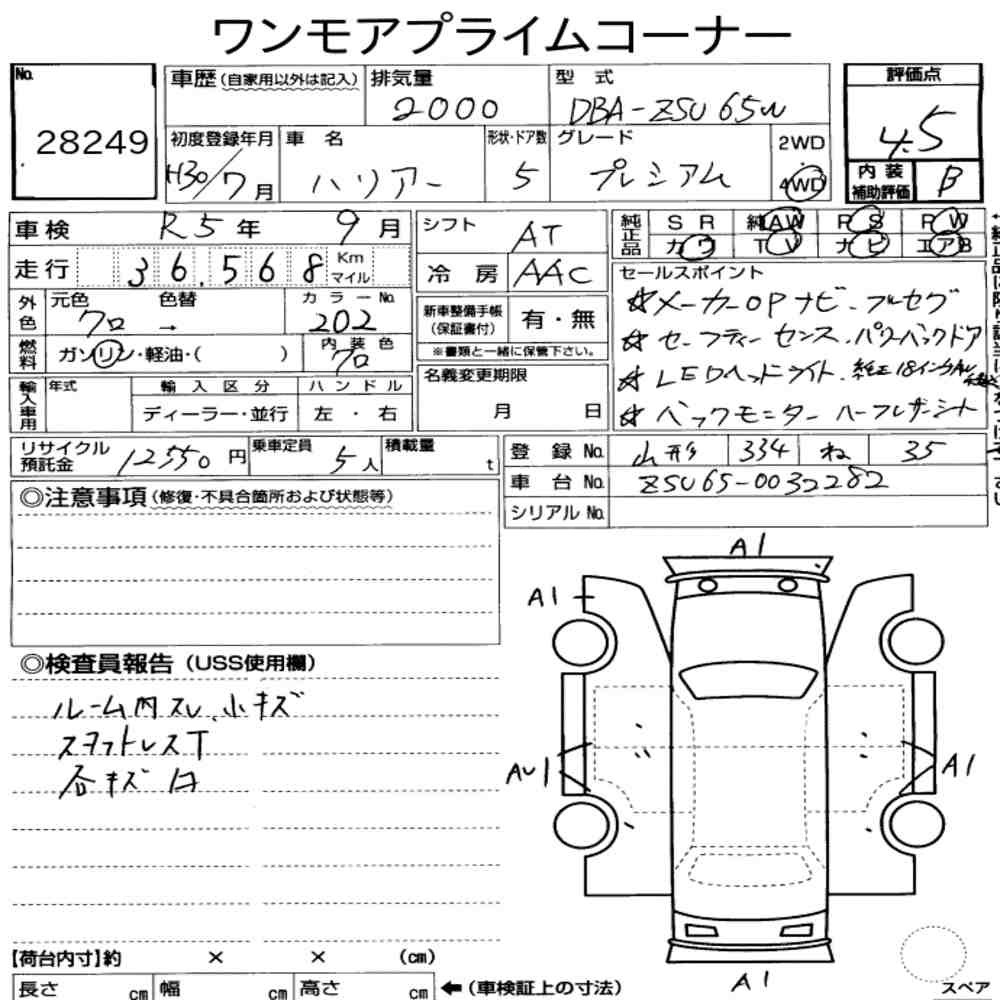 ワンモアプライムコーナー
No.
28249
車歴(自家用以外は記入)
排気量
2000
型式
DBA-ZSU65W
評価点
4.5
初度登録年月
H30/7月
車名
ハリアー
形状・ドア数
5
グレード
プレミアム
2WD
4WD
内装
補助評価
B
車検 R5年 9月
走行 36,568 Km マイル
シフト
AT
冷房
AAC
純正品
SR 純AW PS PW
カワ TV ナビ エアB
外色
元色
クロ
色替
→
カラーNo.
202
燃料
ガソリン・軽油・( )
内装色
クロ
新車整備手帳
(保証書付)
有・無
※書類と一緒に保管下さい。
セールスポイント
☆メーカーOPナビ・フルセグ
☆セーフティーセンス・パワーバックドア
☆LEDヘッドライト・純正18インチAW
☆バックモニター ハーフレザーシート
輸入車用
年式
輸入区分
ディーラー・並行
ハンドル
左・右
名義変更期限
月 日
リサイクル
預託金
12550円
乗車定員
5人
積載量
t
登録No. 山形 334 ね 35
車台No. ZSU65-0032282
シリアルNo.
◎注意事項(修復・不具合箇所および状態等)
◎検査員報告(USS使用欄)
ルーム内スレ、小キズ
スタットレスT
各キズ
A1
A1
AU1
A1
A1
【荷台内寸】約 × × (cm)
長さ cm 幅 cm 高さ cm
←(車検証上の寸法)
スペア